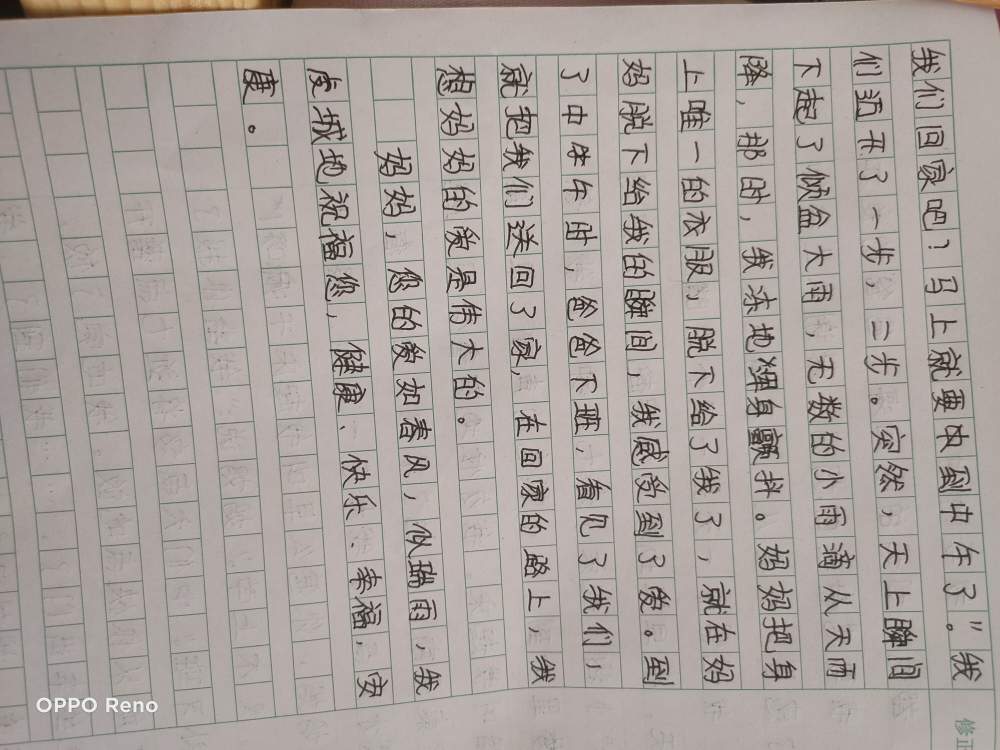 我们回家吧？马上就要中到中午了”。我
们迈开了一步，二步。突然，天上瞬间
下起了倾盆大雨，无数的小雨滴从天而
降，那时，我冻地浑身颤抖。妈妈把身
上唯一的衣服，脱下给了我了，就在妈
妈脱下给我的瞬间，我感受到了爱。到
了中午时，爸爸下班，看见了我们，
就把我们送回了家，在回家的路上，我
想妈妈的爱是伟大的。
妈妈，您的爱如春风，似瑞雨，我
虔城地祝福您，健康、快乐、幸福，安
康。
修正
OPPO Reno